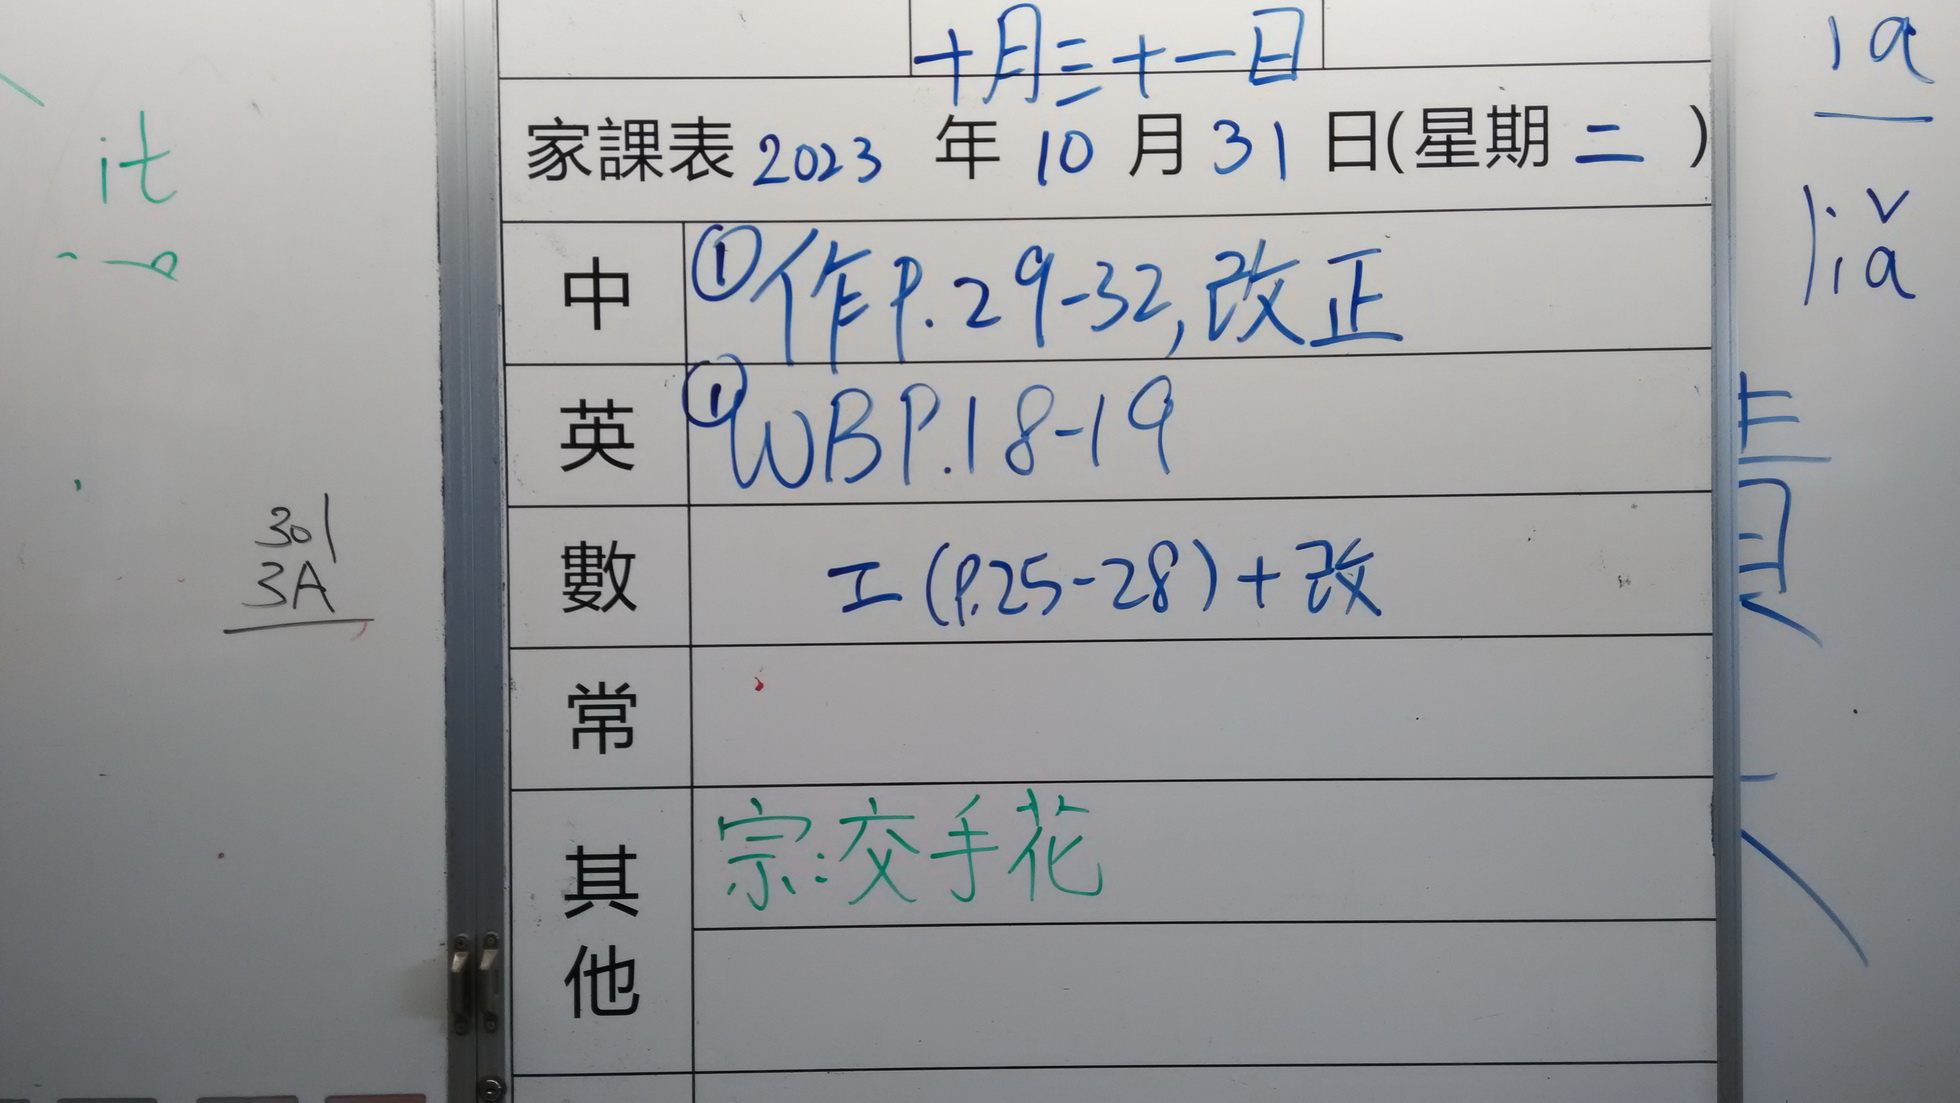 十月三十一日
家課表 2023 年 10 月 31 日(星期 二 )
中 ①作P.29-32,改正
英 ①WBP.18-19
數 工(P.25-28)+改
常
其他 宗:交手花
it
301
3A
ia
iǎ